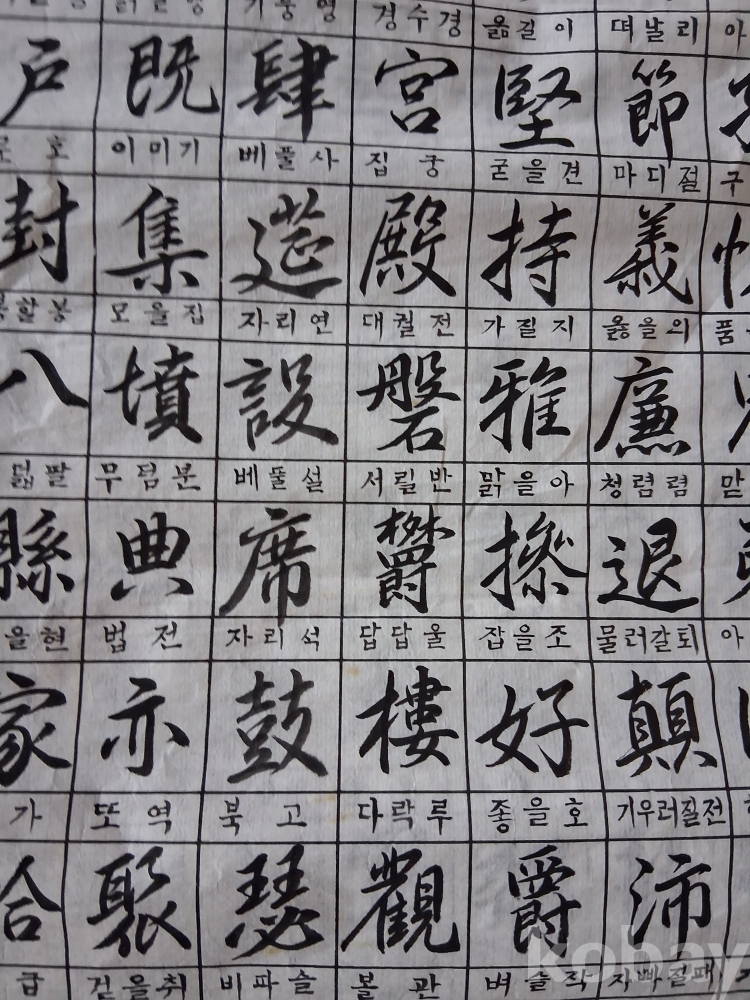 기둥영 경수경 옮길이 떠날리 아
戶 既 肆 宮 堅 節
호 이미기 베풀사 집궁 굳을견 마디절 구
封 集 筵 殿 持 義
봉할봉 모을집 자리연 대궐전 가질지 옳을의 품
八 墳 設 磐 雅 廉
덟팔 무덤분 베풀설 서릴반 맑을아 청렴렴 맏
縣 典 席 欝 操 退
을현 법전 자리석 답답울 잡을조 물러갈퇴 아
家 亦 鼓 樓 好 顚
가 또역 북고 다락루 좋을호 기우러질전
合 聚 瑟 觀 爵 沛
급 걷을취 비파슬 볼관 벼슬작 자빠질패
kobay